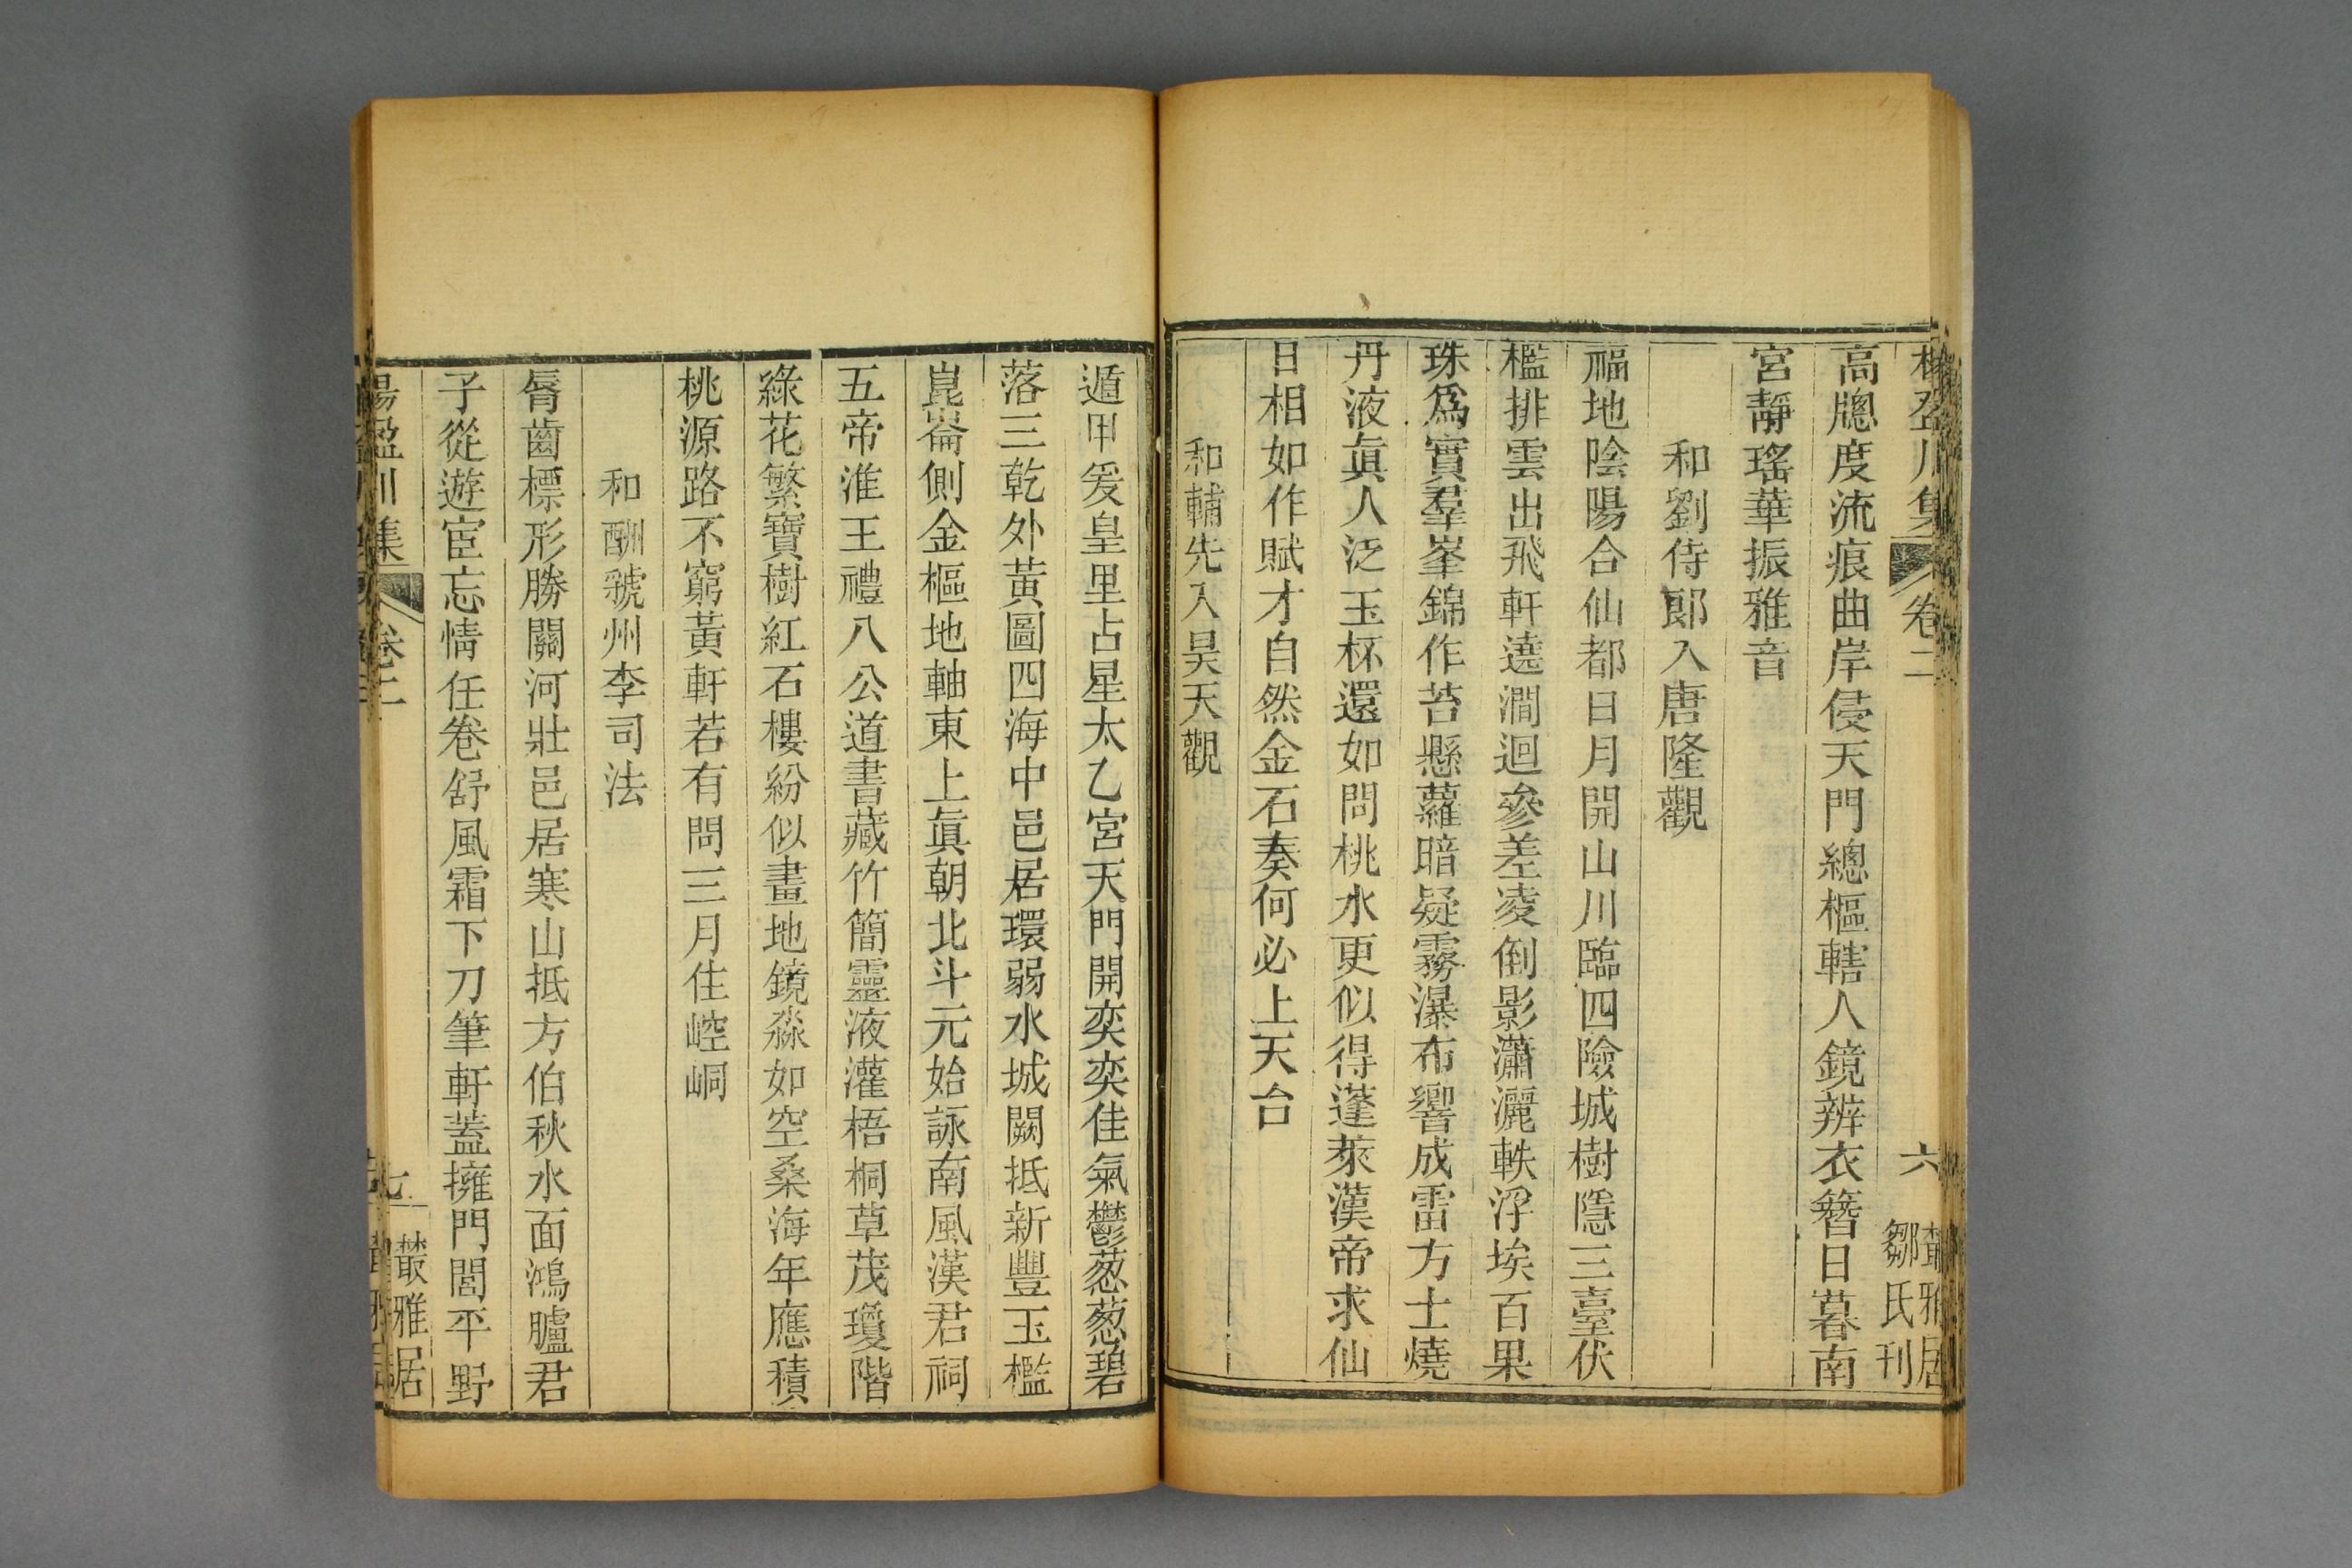 楊盈川集 卷二 六 叢雅居鄒氏刊
高牕度流痕曲岸侵天門總樞轄人鏡辨衣簪日暮南
宮靜瑤華振雅音
和劉侍郞入唐隆觀
福地陰陽合仙都日月開山川臨四險城樹隱三臺伏
檻排雲出飛軒遶澗迴參差凌倒影瀟灑軼浮埃百果
珠爲實羣峯錦作苔懸蘿暗疑霧瀑布響成雷方士燒
丹液眞人泛玉杯還如問桃水更似得蓬萊漢帝求仙
日相如作賦才自然金石奏何必上天台
和輔先入昊天觀
遁甲爰皇里占星太乙宮天門開奕奕佳氣鬱葱葱碧
落三乾外黃圖四海中邑居環弱水城闕抵新豐玉檻
崑崙側金樞地軸東上眞朝北斗元始詠南風漢君祠
五帝淮王禮八公道書藏竹簡靈液灌梧桐草茂瓊階
綠花繁寶樹紅石樓紛似畫地鏡淼如空桑海年應積
桃源路不窮黃軒若有問三月住崆峒
和酬虢州李司法
脣齒標形勝關河壯邑居寒山抵方伯秋水面鴻臚君
子從遊宦忘情任卷舒風霜下刀筆軒蓋擁門閭平野
楊盈川集 卷二 七 叢雅居